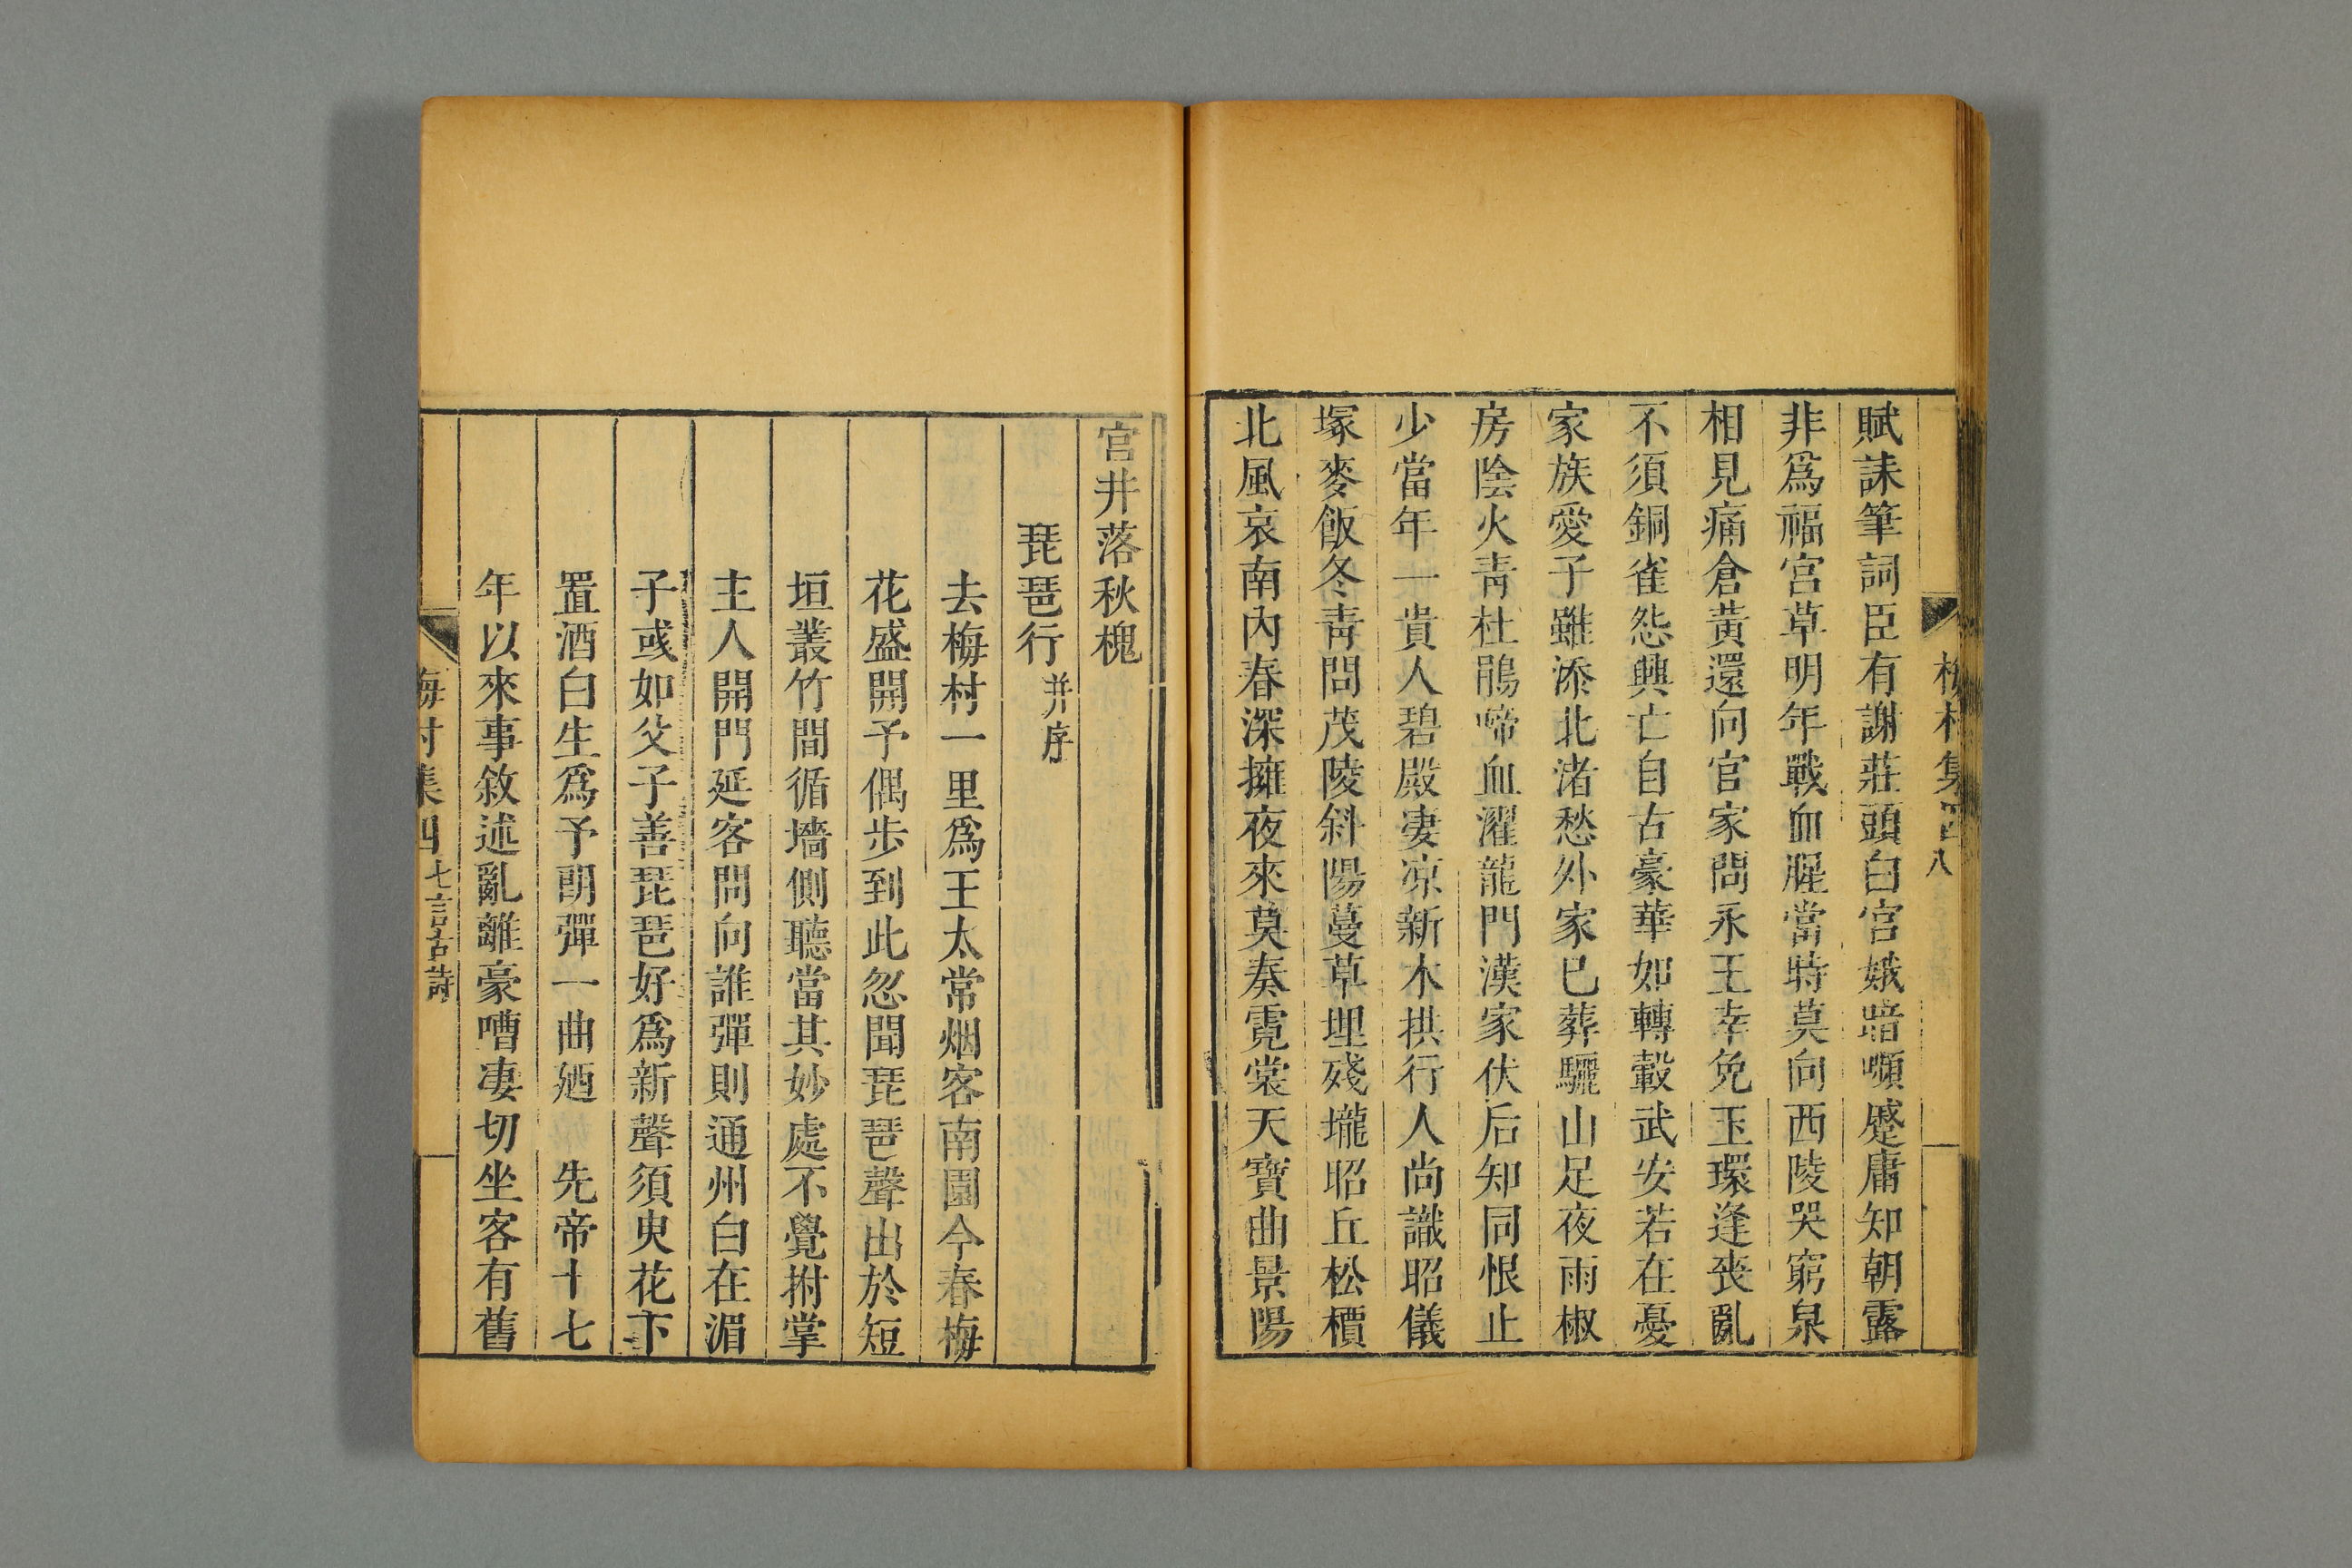 賦誄筆詞臣有謝莊頭白宮娥暗嚬蹙庸知朝露
非爲福宮草明年戰血腥當時莫向西陵哭窮泉
相見痛倉黃還向官家問永王幸免玉環逢喪亂
不須銅雀怨興亡自古豪華如轉轂武安若在憂
家族愛子雖添北渚愁外家已葬驪山足夜雨椒
房陰火青杜鵑啼血濯龍門漢家伏后知同恨止
少當年一貴人碧殿凄凉新木拱行人尚識昭儀
塚麥飯冬青問茂陵斜陽蔓草埋殘壠昭丘松檟
北風哀南內春深擁夜來莫奏霓裳天寶曲景陽
宮井落秋槐
琵琶行并序
去梅村一里爲王太常烟客南園今春梅
花盛開予偶步到此忽聞琵琶聲出於短
垣叢竹間循墻側聽當其妙處不覺拊掌
主人開門延客問向誰彈則通州白在湄
子彧如父子善琵琶好爲新聲須臾花下
置酒白生爲予朗彈一曲廼 先帝十七
年以來事敘述亂離豪嘈凄切坐客有舊
梅村集四七言古詩